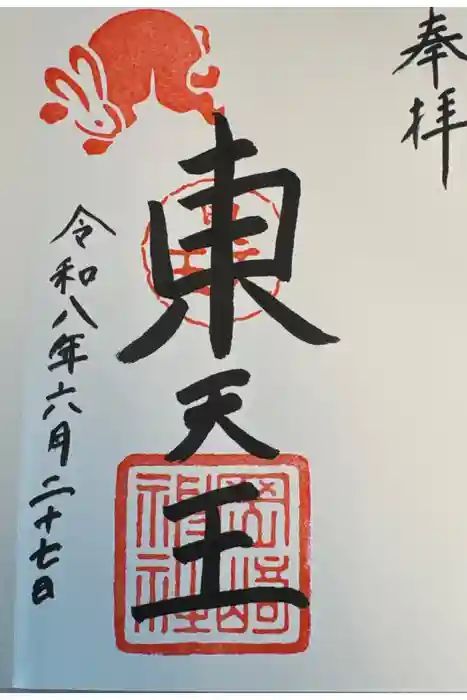 奉拝
東天王
岡﨑
神社
令和八年六月二十七日